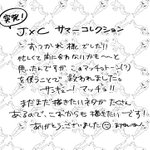 突発!
J×C サマーコレクション
おつかれ様でした!!
忙しくて間に合わないかも〜と
思ったんですが、このマッチョトーン(?)
を使うことで救われました。
サンキュー!マッチョ!!
まだまだ描きたいネタがたくさん
あるので、これからも描きたいです!
ありがとうございました